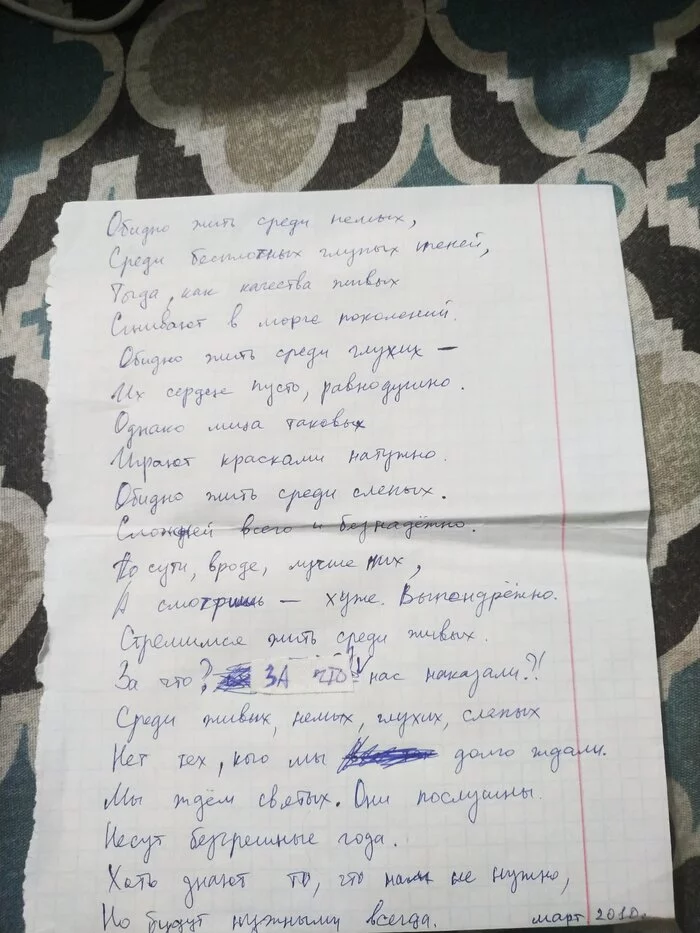 Обидно жить среди немых,
Среди бесплотных глупых теней,
Тогда, как качества живых
Сгнивают в морге поколений.
Обидно жить среди глухих —
Их сердце пусто, равнодушно.
Однако лица таковых
Играют красками натужно.
Обидно жить среди слепых.
Сложней всего и безнадёжно.
По сути, вроде, лучше них,
А смотришь — хуже. Выпендрёжно.
Стремимся жить среди живых.
За что? ЗА ЧТО нас наказали?!
Среди живых, немых, глухих, слепых
Нет тех, кого мы долго ждали.
Мы ждём святых. Они послушны.
Несут безгрешные года.
Хоть знают то, что нам не нужно,
Но будут нужными всегда. март 2010.